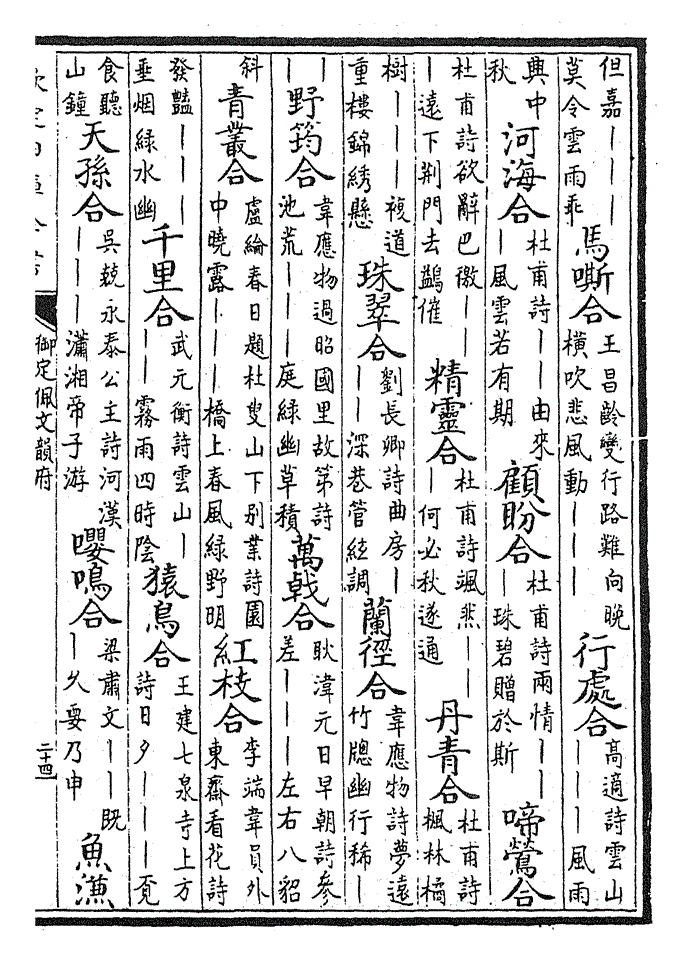 但嘉｜｜｜莫令雲雨乖馬嘶合王昌齡變行路難向晚橫吹悲風動｜｜｜行處合高適詩雲山｜｜｜風雨
興中秋河海合杜甫詩｜｜由來｜風雲若有期顧盼合杜甫詩兩情｜｜｜珠碧贈於斯啼鶯合
杜甫詩欲辭巴徼｜｜｜遠下荆門去鷁催精靈合杜甫詩颯然｜｜｜何必秋遂通丹青合杜甫詩楓林橘
樹｜｜｜複道重樓錦綉懸珠翠合劉長卿詩曲房｜｜｜深巷管絃調蘭徑合韋應物詩夢遠竹牕幽行稀｜
｜｜野筠合韋應物過昭國里故第詩池荒｜｜｜庭綠幽草積萬戟合耿湋元日早朝詩參差｜｜｜左右八貂
斜青叢合盧綸春日題杜叟山下别業詩園中曉露｜｜｜橋上春風綠野明紅枝合李端韋員外東齋看花詩
發豔｜｜｜垂烟綠水幽千里合武元衡詩雲山｜｜｜霧雨四時陰猿鳥合王建七泉寺上方詩日夕｜｜｜覔
食聽山鐘天孫合吳兢永泰公主詩河漢｜｜｜瀟湘帝子游嚶鳴合梁肅文｜｜既｜久要乃申魚
欽定四庫全書
御定佩文韻府
二十四